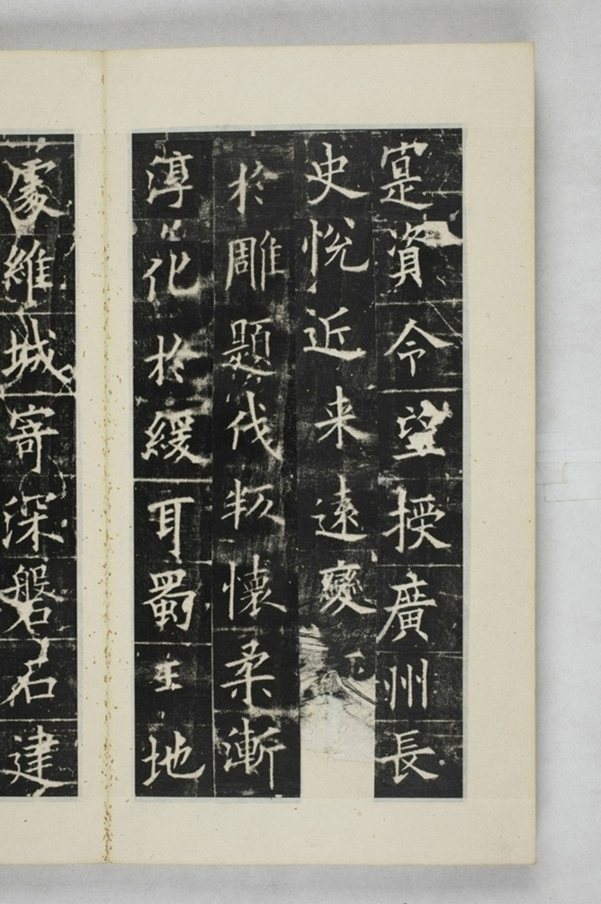 寔資令望授廣州長
史悅近来遠變
於雕題伐叛懷柔漸
淳化於緩耳蜀土地
處維城寄深磐石建